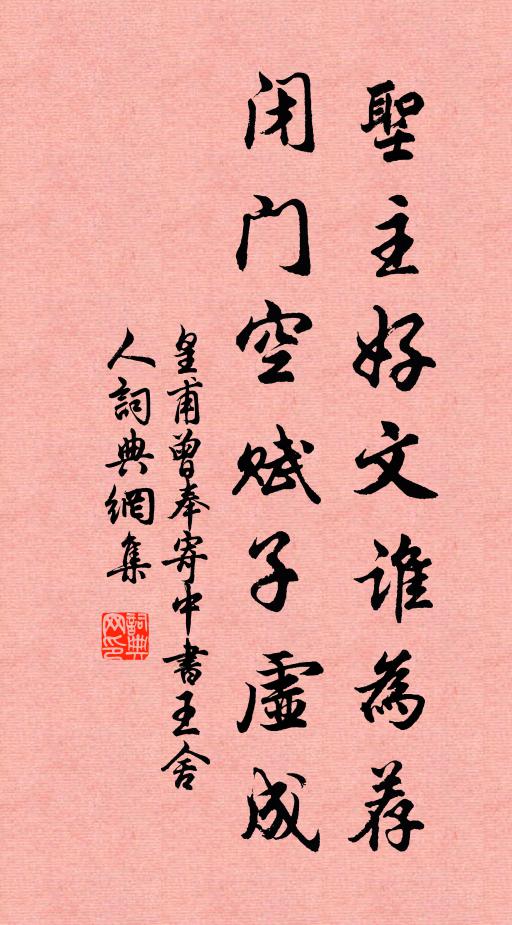 聖主好文誰為荐
闭门空赋子虛成
皇甫曾奉寄中書王舍
人詞典網集
詞典网印